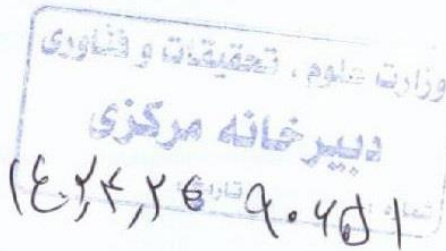 وزارت علوم ، تحقیقات و فناوری
دبیرخانه مرکزی
شماره تاریخ
۹۰۶۵۱